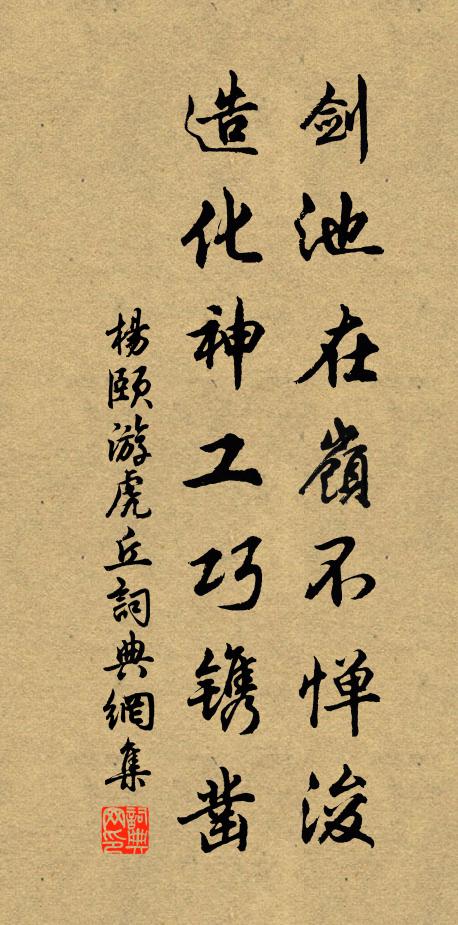 剑池在嶺不惮浚
造化神工巧镌凿
楊頤游虎丘詞典網集
詞典網印